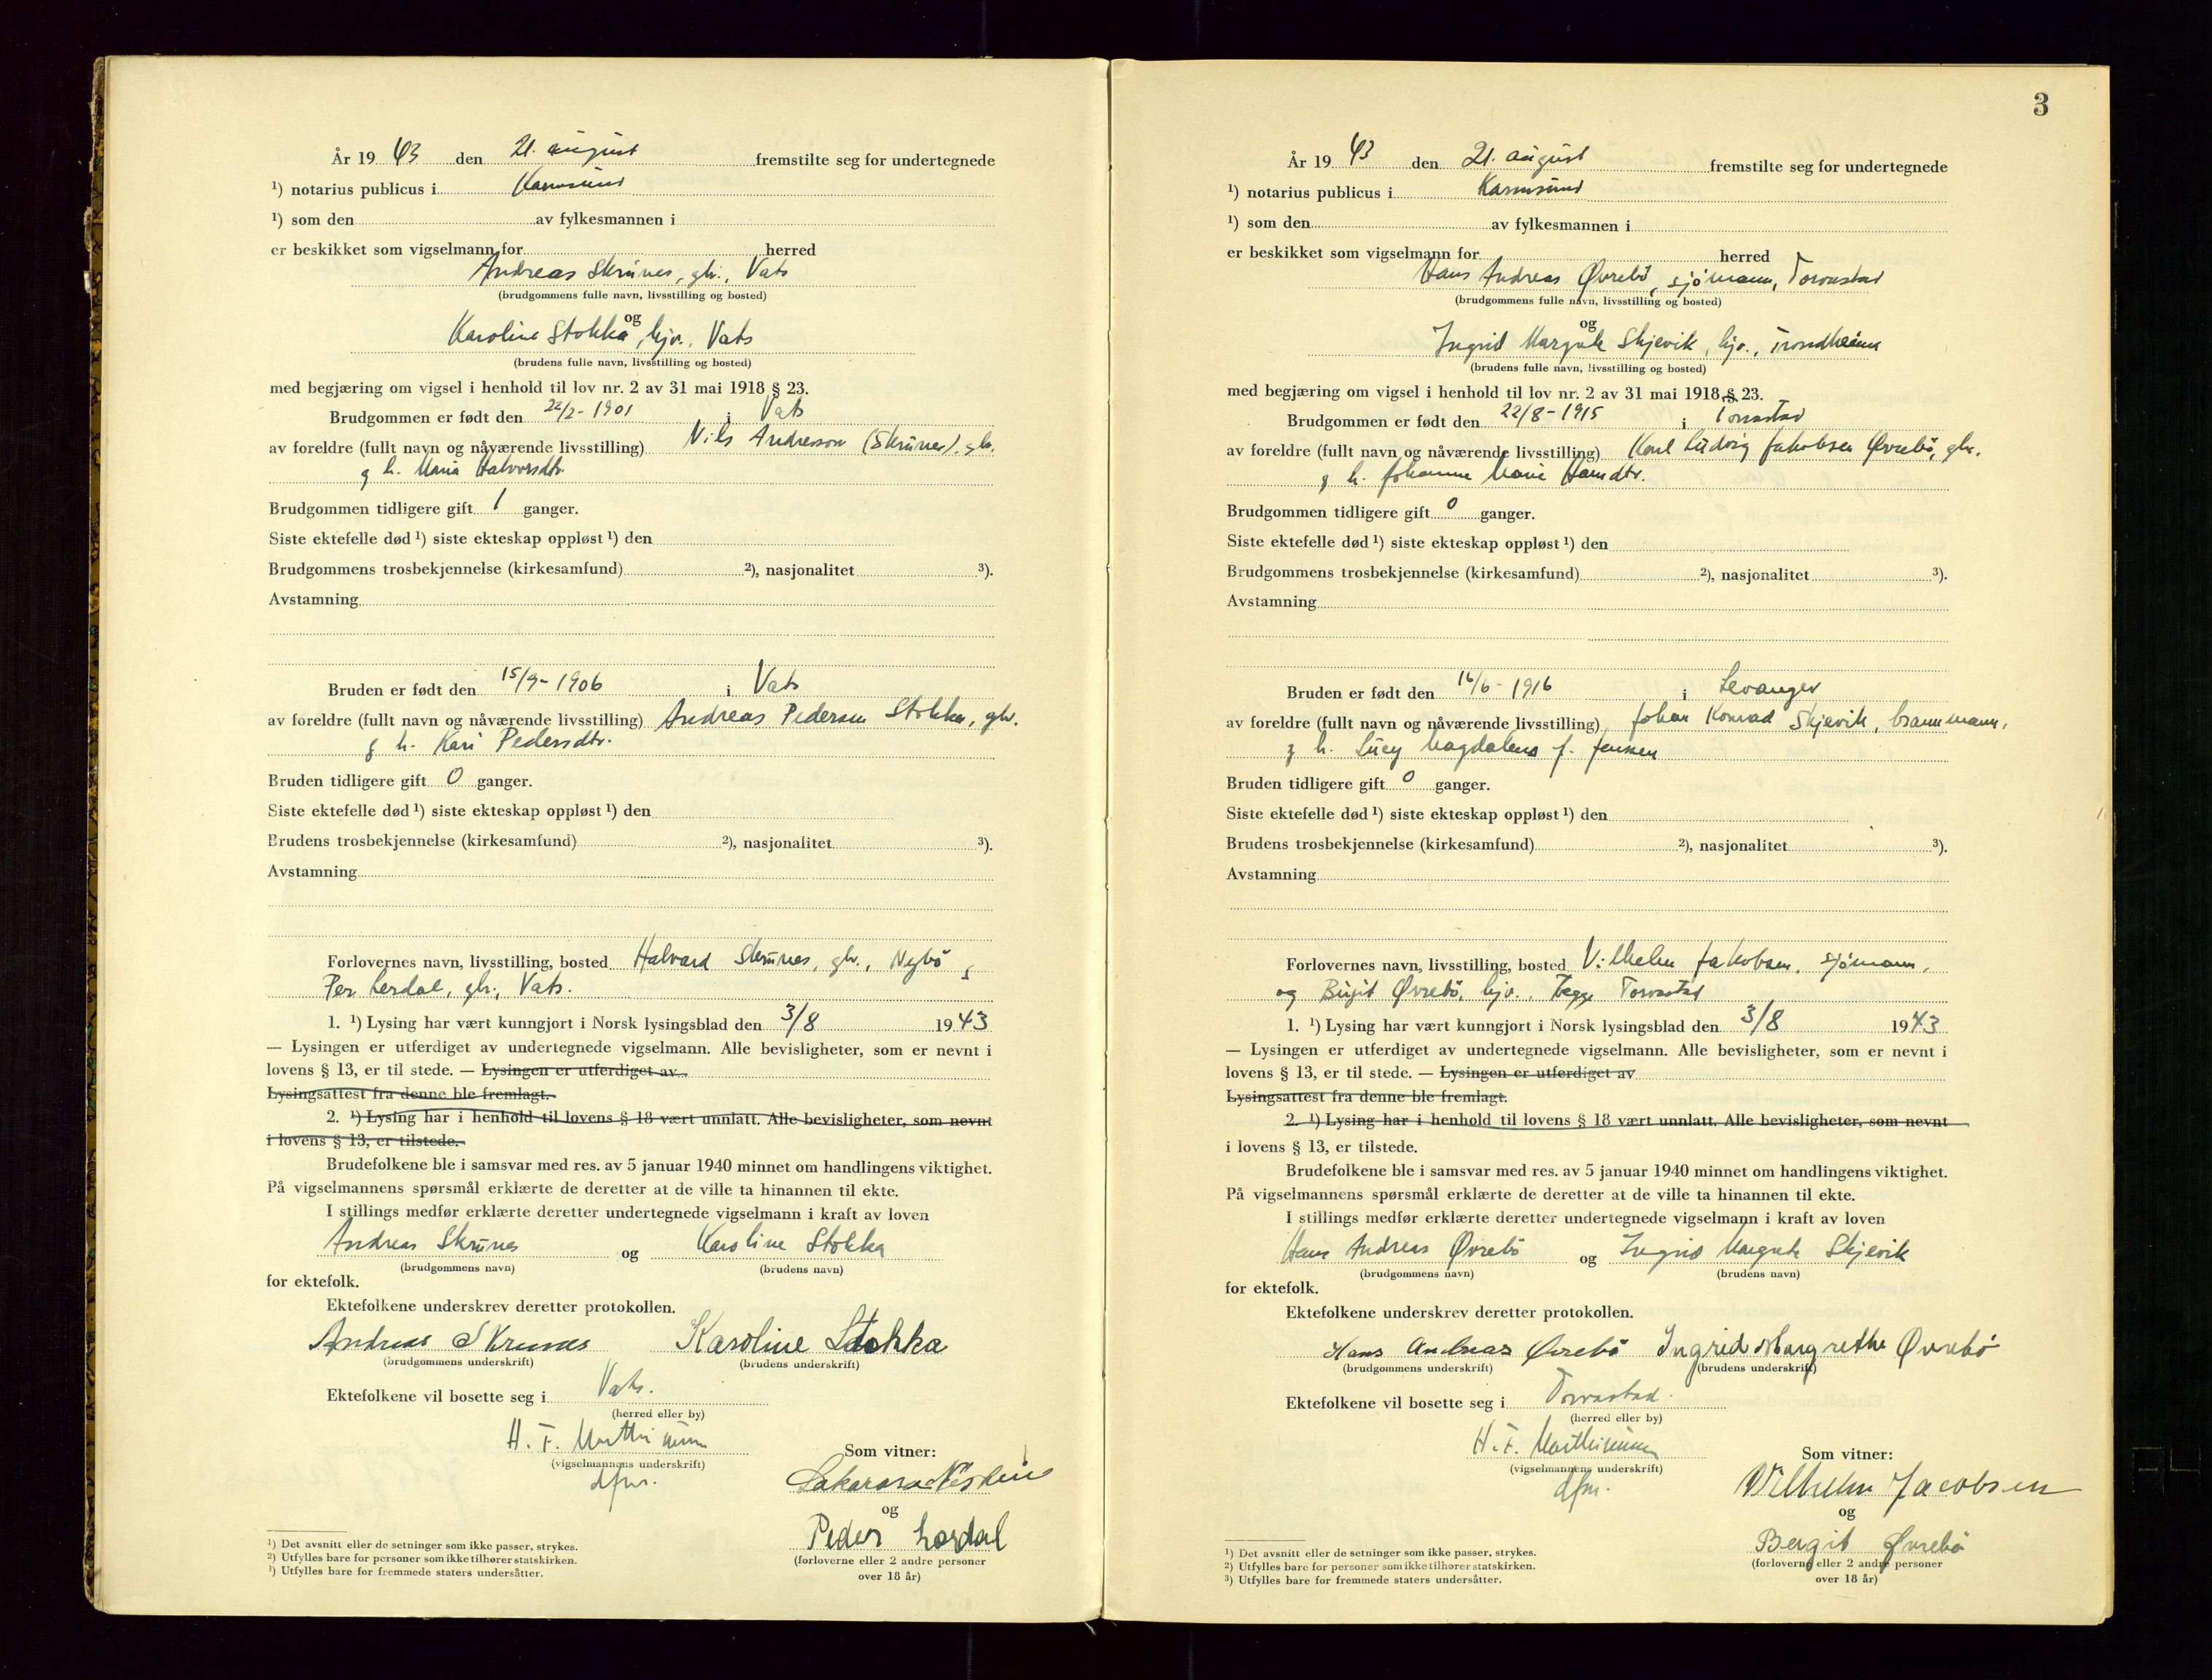 År 19 43 den 21. august fremstilte seg for undertegnede
¹) notarius publicus i Karmsund
¹) som den av fylkesmannen i
er beskikket som vigselmann for herred
Andreas Skrunes, gbr., Vats
(brudgommens fulle navn, livsstilling og bosted)
og
Karoline Stokka, hjv., Vats
(brudens fulle navn, livsstilling og bosted)
med begjæring om vigsel i henhold til lov nr. 2 av 31 mai 1918 § 23.
Brudgommen er født den 22/2- 1901 i Vats
av foreldre (fullt navn og nåværende livsstilling) Nils Andresson (Skrunes), gbr.
g h. Maria Halvorsdtr.
Brudgommen tidligere gift 1 ganger.
Siste ektefelle død ¹) siste ekteskap oppløst ¹) den
Brudgommens trosbekjennelse (kirkesamfund) ²), nasjonalitet ³).
Avstamning
Bruden er født den 15/9- 1906 i Vats
av foreldre (fullt navn og nåværende livsstilling) Andreas Pedersen Stokka, gbr.
g h. Kari Pedersdtr.
Bruden tidligere gift 0 ganger.
Siste ektefelle død ¹) siste ekteskap oppløst ¹) den
Brudens trosbekjennelse (kirkesamfund) ²), nasjonalitet ³).
Avstamning
Forlovernes navn, livsstilling, bosted Halvard Skrunes, gbr., Nybö g
Per Lerdal, gbr., Vats.
1. ¹) Lysing har vært kunngjort i Norsk lysingsblad den 3/8 19 43
— Lysingen er utferdiget av undertegnede vigselmann. Alle bevisligheter, som er nevnt i
lovens § 13, er til stede. — Lysingen er utferdiget av
Lysingsattest fra denne ble fremlagt.
2. ¹) Lysing har i henhold til lovens § 18 vært unnlatt. Alle bevisligheter, som nevnt
i lovens § 13, er tilstede.
Brudefolkene ble i samsvar med res. av 5 januar 1940 minnet om handlingens viktighet.
På vigselmannens spørsmål erklærte de deretter at de ville ta hinannen til ekte.
I stillings medfør erklærte deretter undertegnede vigselmann i kraft av loven
Andreas Skrunes og Karoline Stokka
(brudgommens navn) (brudens navn)
for ektefolk.
Ektefolkene underskrev deretter protokollen.
Andreas Skrunes Karoline Stokka
(brudgommens underskrift) (brudens underskrift)
Ektefolkene vil bosette seg i Vats.
(herred eller by)
H. F. Marthinussen
(vigselmannens underskrift)
dfm.
Som vitner:
og
Peder Lærdal
(forloverne eller 2 andre personer
over 18 år)
¹) Det avsnitt eller de setninger som ikke passer, strykes.
²) Utfylles bare for personer som ikke tilhører statskirken.
³) Utfylles bare for fremmede staters undersåtter.
3
År 19 43 den 21. august fremstilte seg for undertegnede
¹) notarius publicus i Karmsund
¹) som den av fylkesmannen i
er beskikket som vigselmann for herred
Hans Andreas Øvrebö, sjömann, Torvastad
(brudgommens fulle navn, livsstilling og bosted)
og
Ingrid Margrete Skjevik, hjv., Trondheim
(brudens fulle navn, livsstilling og bosted)
med begjæring om vigsel i henhold til lov nr. 2 av 31 mai 1918 § 23.
Brudgommen er født den 22/8 - 1915 i Torvastad
av foreldre (fullt navn og nåværende livsstilling) Karl Ludvig Jakobsen Øvrebö, gbr.
g h. Johanne Marie Hansdtr.
Brudgommen tidligere gift 0 ganger.
Siste ektefelle død ¹) siste ekteskap oppløst ¹) den
Brudgommens trosbekjennelse (kirkesamfund) ²), nasjonalitet ³).
Avstamning
Bruden er født den 16/6 - 1916 i Levanger
av foreldre (fullt navn og nåværende livsstilling) Johan Konrad Skjevik, brannmann,
g h. Lucy Magdalena f. Jensen
Bruden tidligere gift 0 ganger.
Siste ektefelle død ¹) siste ekteskap oppløst ¹) den
Brudens trosbekjennelse (kirkesamfund) ²), nasjonalitet ³).
Avstamning
Forlovernes navn, livsstilling, bosted Vilhelm Jakobsen, sjömann,
og Birgit Øvrebö, hjv., begge Torvastad
1. ¹) Lysing har vært kunngjort i Norsk lysingsblad den 3/8 19 43
— Lysingen er utferdiget av undertegnede vigselmann. Alle bevisligheter, som er nevnt i
lovens § 13, er til stede. — Lysingen er utferdiget av
Lysingsattest fra denne ble fremlagt.
2. ¹) Lysing har i henhold til lovens § 18 vært unnlatt. Alle bevisligheter, som nevnt
i lovens § 13, er tilstede.
Brudefolkene ble i samsvar med res. av 5 januar 1940 minnet om handlingens viktighet.
På vigselmannens spørsmål erklærte de deretter at de ville ta hinannen til ekte.
I stillings medfør erklærte deretter undertegnede vigselmann i kraft av loven
Hans Andreas Øvrebö og Ingrid Margrete Skjevik
(brudgommens navn) (brudens navn)
for ektefolk.
Ektefolkene underskrev deretter protokollen.
Hans Andreas Øvrebö Ingrid Margrethe Øvrebö
(brudgommens underskrift) (brudens underskrift)
Ektefolkene vil bosette seg i Torvastad.
(herred eller by)
H. F. Marthinussen
(vigselmannens underskrift)
dfm.
Som vitner:
Vilhelm Jacobsen
og
Bergit Øvrebö
(forloverne eller 2 andre personer
over 18 år)
¹) Det avsnitt eller de setninger som ikke passer, strykes.
²) Utfylles bare for personer som ikke tilhører statskirken.
³) Utfylles bare for fremmede staters undersåtter.